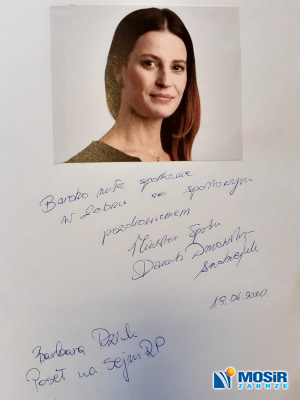 Bardzo miłe spotkanie
w Zabrzu ze sportowym
pozdrowieniem
Minister Sportu
Danuta Dmowska
Andrzejuk
19.06.2020.
Barbara Dziuk
Poseł na Sejm RP
MOSiR
ZABRZE